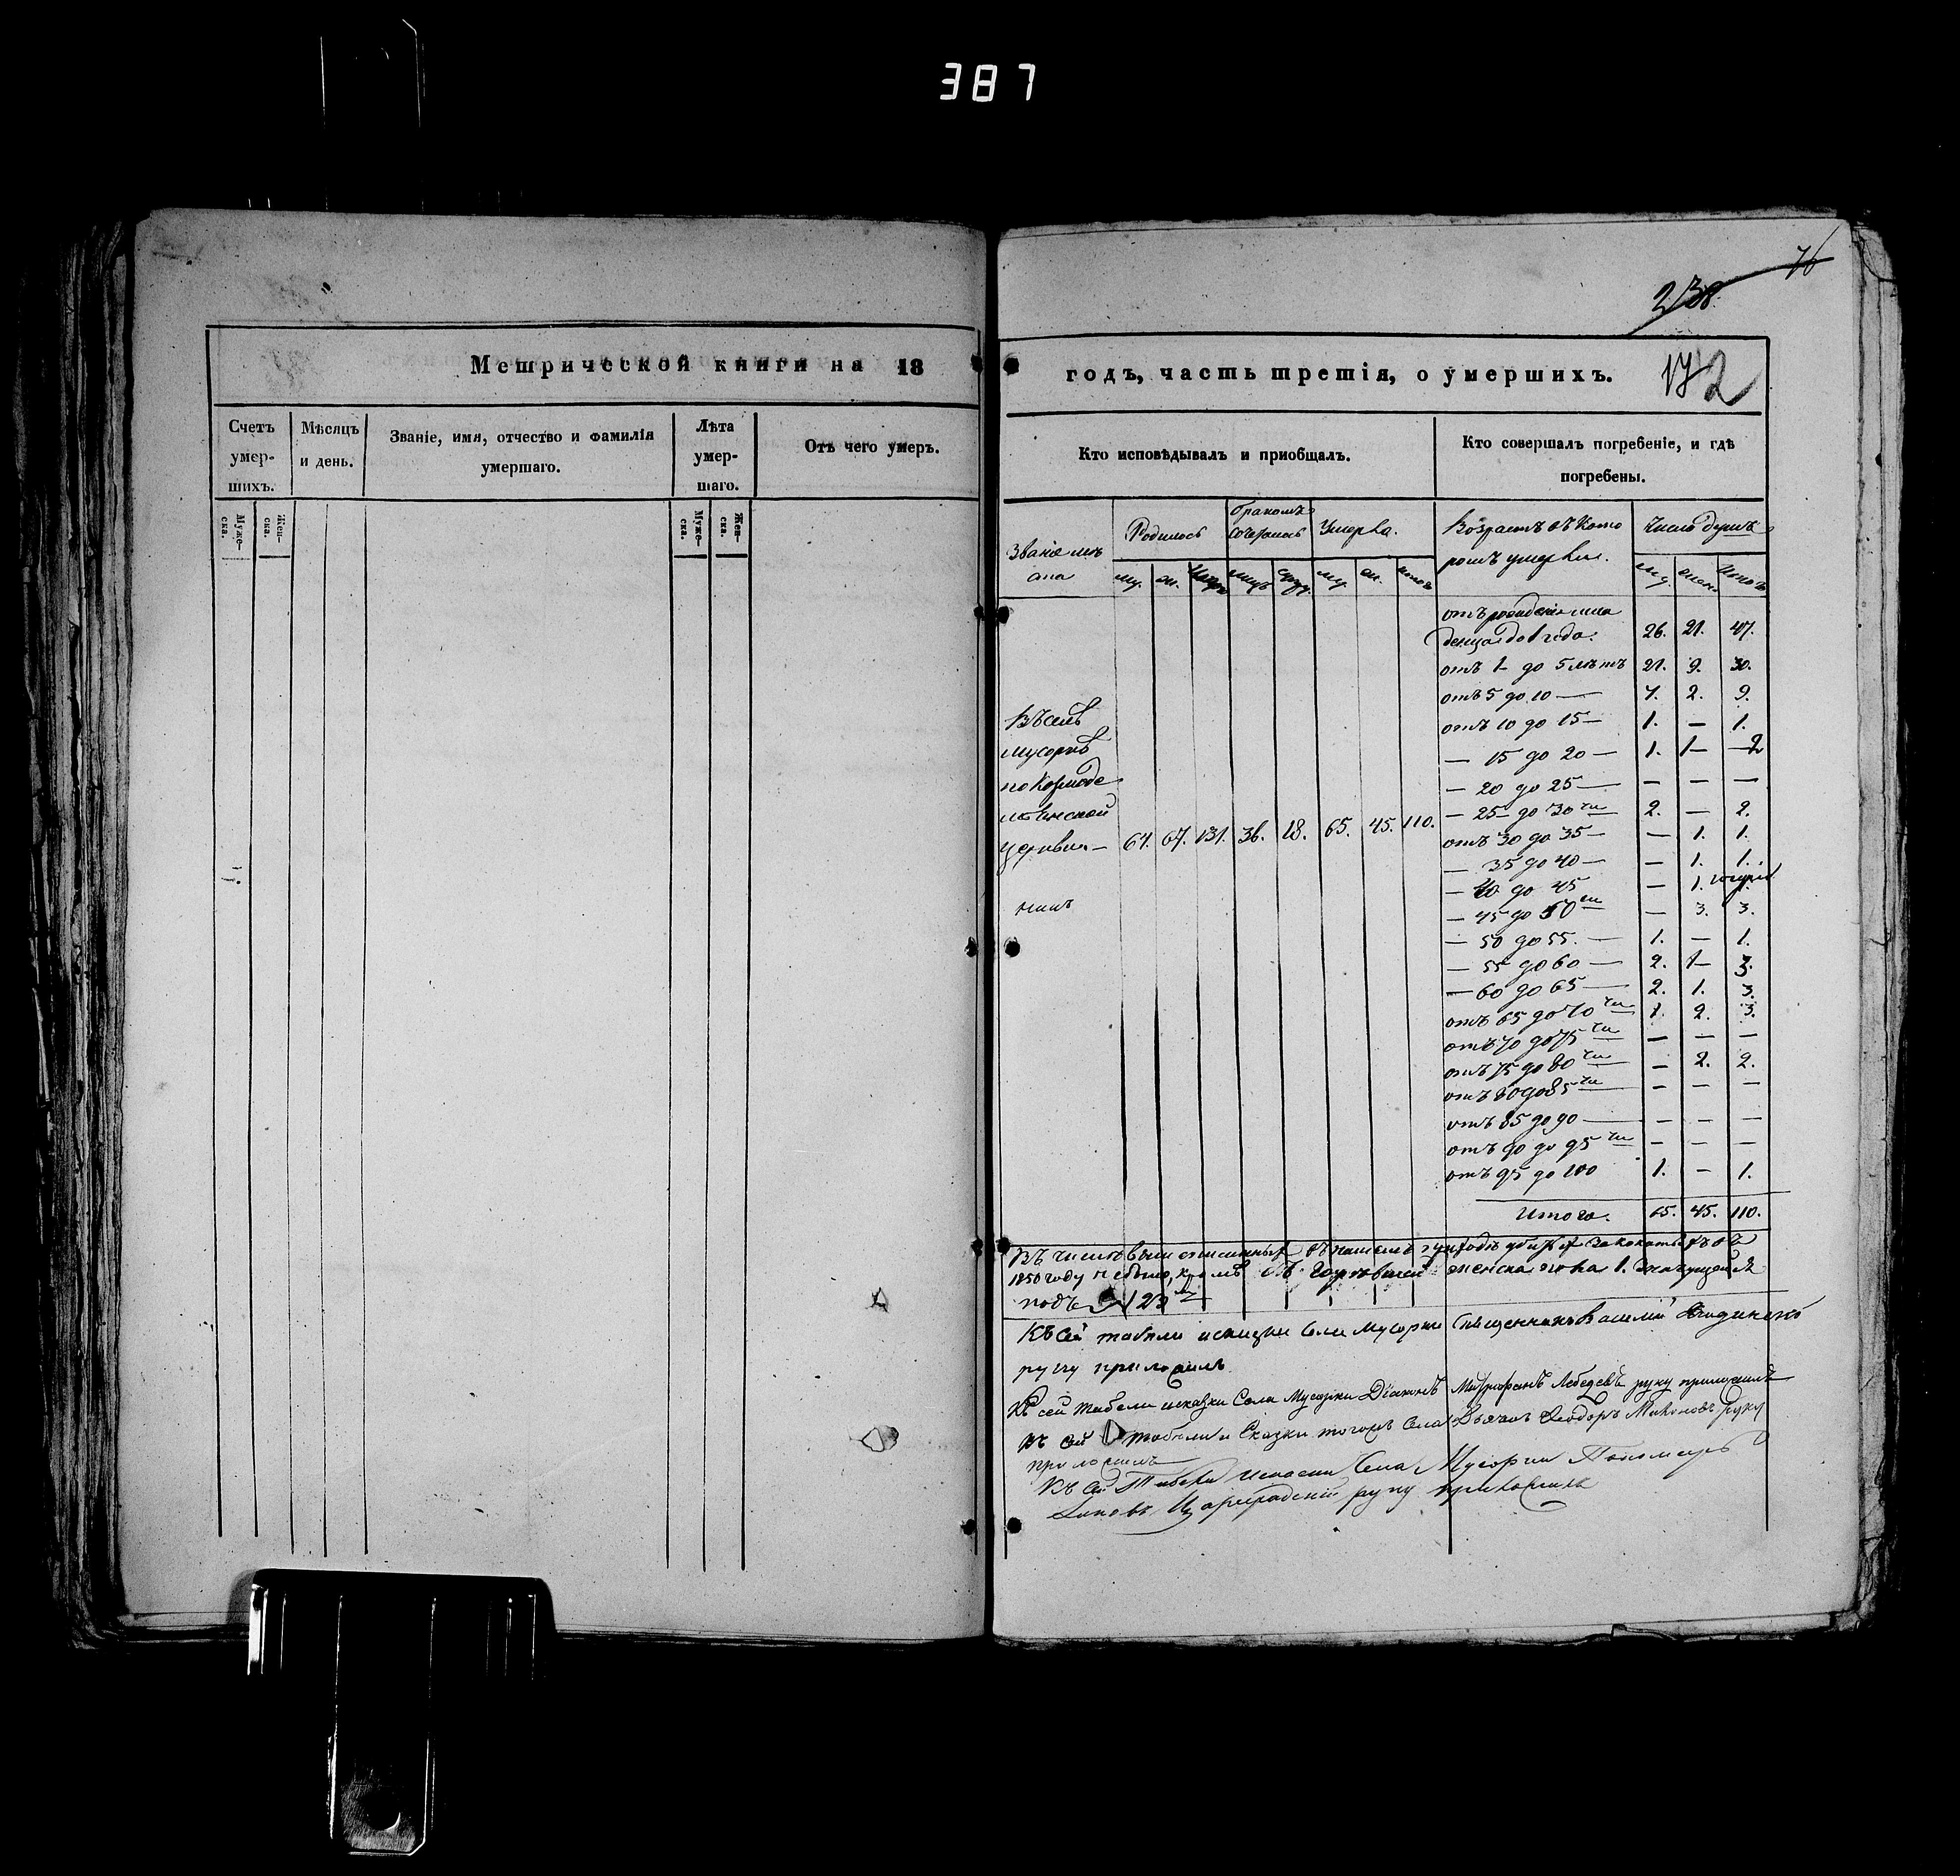 387
76
238.
172
Метрической книги на 18
годъ, часть третія, о умершихъ.
Счетъ умер-шихъ.
Мѣсяцъ и день.
Званіе, имя, отчество и фамилія умершаго.
Лѣта умер-шаго.
Отъ чего умеръ.
Кто исповѣдывалъ и пріобщалъ.
Кто совершалъ погребеніе, и гдѣ погребены.
Муже-ска.
Жен-ска.
Муже-ска.
Жен-ска.
Званіе мѣ
ста
Родилось
бракомъ
сочеталось
Умерло.
Возрастъ въ кото
ромъ умерли.
Число душъ
му. же. муж. му. же. итого
му. жен. Итого
отъ рожденія мла
денца до 1 года. 26. 21. 47.
отъ 1 до 5 лѣтъ 21. 9. 30.
отъ 5 до 10 — 7. 2. 9.
отъ 10 до 15 — 1. — 1.
— 15 до 20 — 1. 1 — 2
— 20 до 25 — — — —
— 25 до 30ти 2. — 2.
отъ 30 до 35 — — 1. 1.
— 35 до 40 — — 1. 1.
— 40 до 45 — 1. 1.
— 45 до 50ти — 3. 3.
— 50 до 55. — 1. — 1.
— 55 до 60 — 2. 1 — 3.
— 60 до 65 — 2. 1. 3.
отъ 65 до 70ти 1. 2. 3.
отъ 70 до 75ти — — —
отъ 75 до 80ти — 2. 2.
отъ 80 до 85ти — — —
отъ 85 до 90 — — — —
отъ 90 до 95ти — — —
отъ 95 до 100 1. — 1.
Итого. 65. 45. 110.
Въ селѣ
Мусоркѣ
по Козмоде
міанской
церкви — 64. 67. 131. 36. 18. 65. 45. 110.
Въ числѣ
1850 году не было, кромѣ женска пола 1.
подъ № 23
Къ сей табели и сказки села Мусорки Священникъ Василій
руку приложилъ
Къ сей табели и сказки Села Мусорки Діаконъ Митрофанъ Лебедевъ руку приложилъ
Къ сей табели и Сказки тогожъ Села Дьячокъ Ѳеодоръ руку
приложилъ
Къ сей Табели и сказки Села Мусорки Пономарь
Цареградскій руку приложилъ